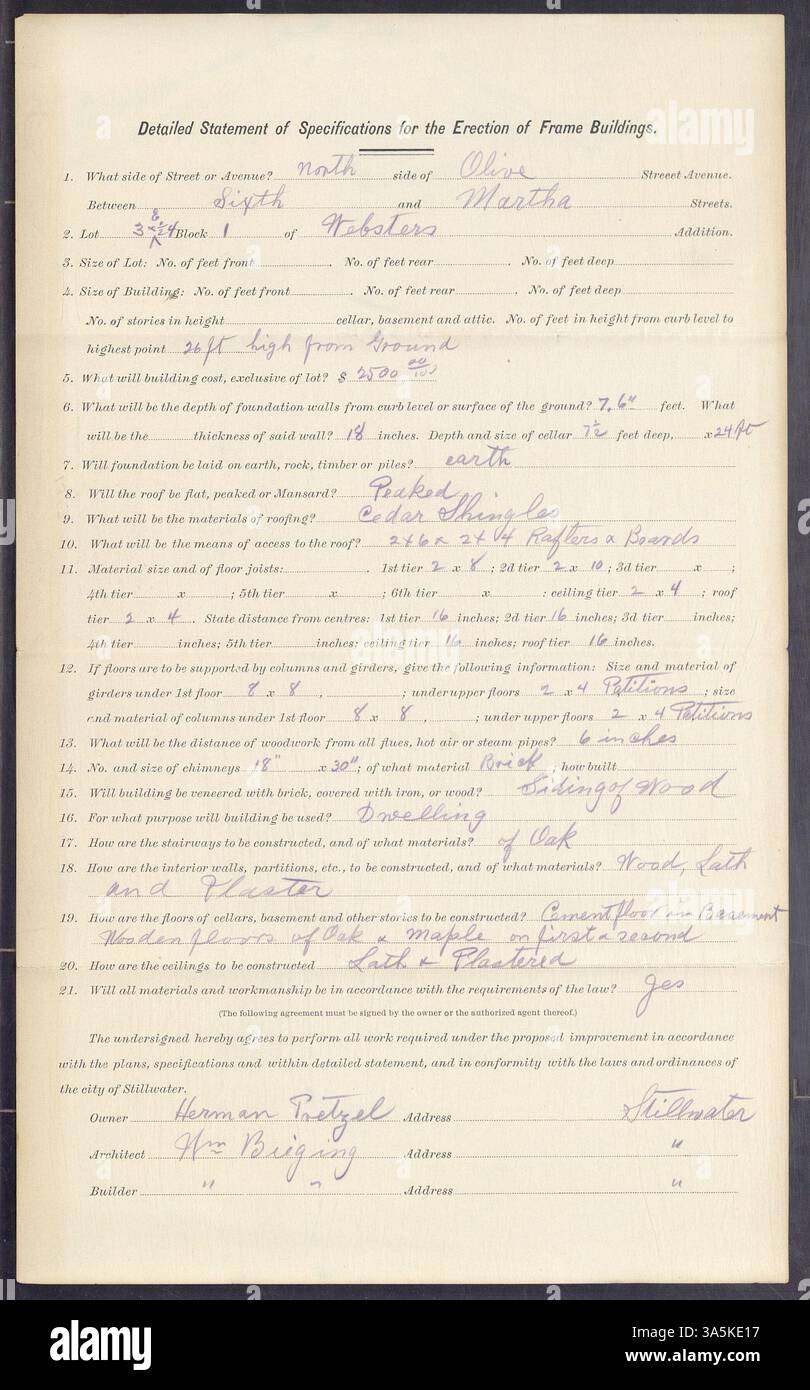 Detailed Statement of Specifications for the Erection of Frame Buildings.
1. What side of Street or Avenue? North side of Olive Streeet Avenue.
Between Sixth and Martha Streets.
2. Lot 3 Block 1 of Websters Addition.
3. Size of Lot: No. of feet front . No. of feet rear . No. of feet deep
4. Size of Building: No. of feet front . No. of feet rear . No. of feet deep
No. of stories in height cellar, basement and attic. No. of feet in height from curb level to
highest point 26 ft high from Ground
5. What will building cost, exclusive of lot? $ 2500 00/100
6. What will be the depth of foundation walls from curb level or surface of the ground? 7,6" feet. What
will be the thickness of said wall? 18 inches. Depth and size of cellar 7½ feet deep, x 24 ft
7. Will foundation be laid on earth, rock, timber or piles? earth
8. Will the roof be flat, peaked or Mansard? Peaked
9. What will be the materials of roofing? Cedar Shingles
10. What will be the means of access to the roof? 2x6 & 2x4 Rafters & Boards
11. Material size and of floor joists: . 1st tier 2 x 8 ; 2d tier 2 x 10 ; 3d tier x ;
4th tier x ; 5th tier x ; 6th tier x : ceiling tier 2 x 4 ; roof
tier 2 x 4 . State distance from centres: 1st tier 16 inches; 2d tier 16 inches; 3d tier inches;
4th tier inches; 5th tier inches: ceiling tier 16 inches; roof tier 16 inches.
12. If floors are to be supported by columns and girders, give the following information: Size and material of
girders under 1st floor 8 x 8 , ; under upper floors 2 x 4 Patitions ; size
and material of columns under 1st floor 8 x 8 , ; under upper floors 2 x 4 Patitions
13. What will be the distance of woodwork from all flues, hot air or steam pipes? 6 inches
14. No. and size of chimneys 18" x 30" ; of what material Brick ; how built
15. Will building be veneered with brick, covered with iron, or wood? Siding of Wood
16. For what purpose will building be used? Dwelling
17. How are the stairways to be constructed, and of what materials? of Oak
18. How are the interior walls, partitions, etc., to be constructed, and of what materials? Wood, Lath
and Plaster
19. How are the floors of cellars, basement and other stories to be constructed? Cement floor in Basement
Wooden floors of Oak & Maple on first & second
20. How are the ceilings to be constructed Lath & Plastered
21. Will all materials and workmanship be in accordance with the requirements of the law? Yes
(The following agreement must be signed by the owner or the authorized agent thereof.)
The undersigned hereby agrees to perform all work required under the proposed improvement in accordance
with the plans, specifications and within detailed statement, and in conformity with the laws and ordinances of
the city of Stillwater.
Owner Herman Pretzel Address Stillwater
Architect Wm Bieging Address "
Builder " " Address "
alamy
Image ID: 3A5KE17
www.alamy.com